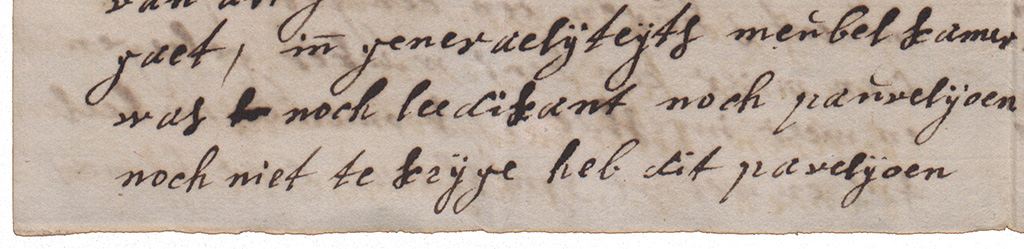 gaet, in generaelÿteÿts meubel kamer
was noch leedikant noch pauvelÿoen
noch niet te krÿge heb dit pavelÿoen